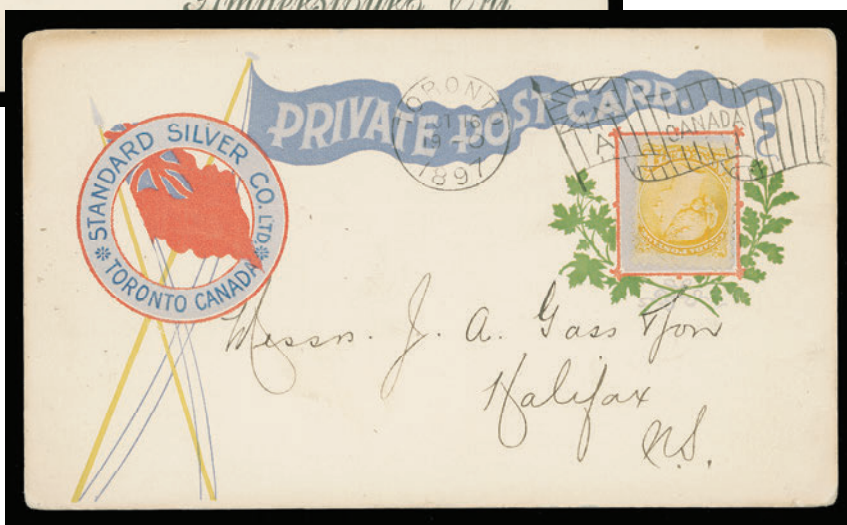 Amherstburg Ont
PRIVATE POST CARD.
TORONTO
19-0
1897
CANADA
STANDARD SILVER CO. LTD.
TORONTO CANADA
Messrs. J. A. Gass & Son
Halifax
N.S.